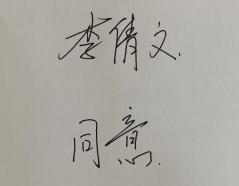 李倩文.
同意.